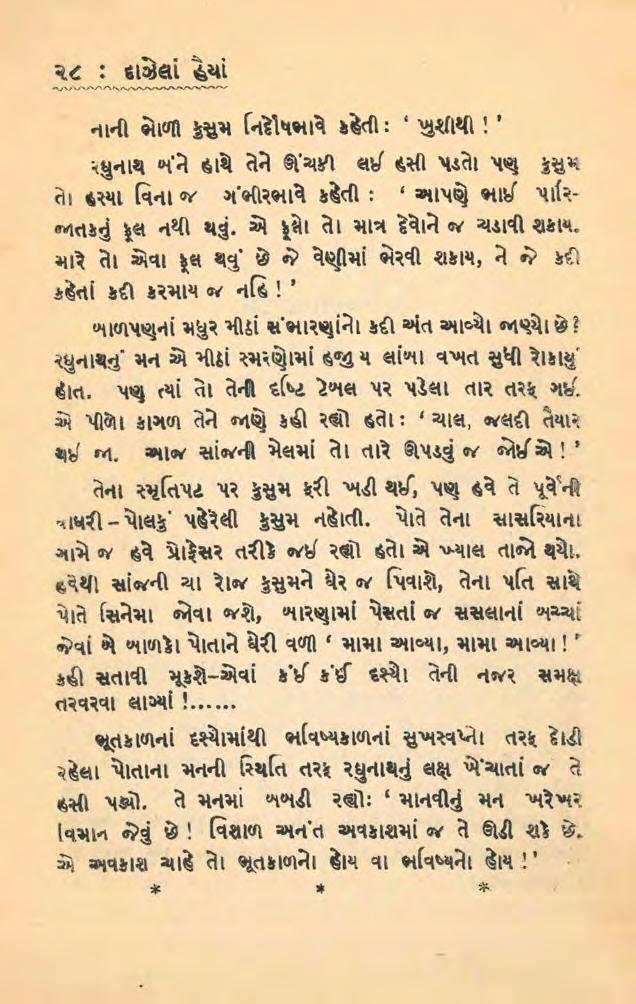 ૨૮ : દાઝેલાં હૈયાં
નાની ભોળી કુસુમ નિર્દોષભાવે કહેતી: ‘ ખુશીથી ! ’
રઘુનાથ બંને હાથે તેને ઊંચકી લઈ હસી પડતો પણ કુસુમ
તો હસ્યા વિના જ ગંભીરભાવે કહેતી : ‘ આપણે ભાઈ પારિ-
જાતકનું ફૂલ નથી થવું. એ ફૂલો તો માત્ર દેવોને જ ચડાવી શકાય.
મારે તો એવા ફૂલ થવું છે જે વેણીમાં ભેરવી શકાય, ને જે કદી
કહેતાં કદી કરમાય જ નહિ ! ’
બાળપણનાં મધુર મીઠાં સંભારણાંનો કદી અંત આવ્યો જાણ્યો છે ?
રઘુનાથનું મન એ મીઠાં સ્મરણોમાં હજુ ય લાંબા વખત સુધી રોકાયું
હોત. પણ ત્યાં તો તેની દષ્ટિ ટેબલ પર પડેલા તાર તરફ ગઈ.
એ પીળો કાગળ તેને જાણે કહી રહ્યો હતો : ‘ ચાલ, જલદી તૈયાર
થઈ જા. આજ સાંજની મેલમાં તો તારે ઊપડવું જ જોઈએ ! ’
તેના સ્મૃતિપટ પર કુસુમ ફરી ખડી થઈ, પણ હવે તે પૂર્વેની
ઘાઘરી – પોલકું પહેરેલી કુસુમ નહોતી. પોતે તેના સાસરિયાના
ગામે જ હવે પ્રોફેસર તરીકે જઈ રહ્યો હતો એ ખ્યાલ તાજો થયો.
હવેથી સાંજની ચા રોજ કુસુમને ઘેર જ પિવાશે, તેના પતિ સાથે
પોતે સિનેમા જોવા જશે, બારણામાં પેસતાં જ સસલાનાં બચ્ચાં
જેવાં બે બાળકો પોતાને ઘેરી વળી ‘ મામા આવ્યા, મામા આવ્યા ! ’
કહી સતાવી મૂકશે–એવાં કંઈ કંઈ દશ્યો તેની નજર સમક્ષ
તરવરવા લાગ્યાં !......
ભૂતકાળનાં દશ્યોમાંથી ભવિષ્યકાળનાં સુખસ્વપ્નો તરફ દોડી
રહેલા પોતાના મનની સ્થિતિ તરફ રઘુનાથનું લક્ષ ખેંચાતાં જ તે
હસી પડ્યો. તે મનમાં બબડી રહ્યો: ‘ માનવીનું મન ખરેખર
વિમાન જેવું છે ! વિશાળ અનંત અવકાશમાં જ તે ઊડી શકે છે.
એ અવકાશ ચાહે તો ભૂતકાળનો હોય વા ભવિષ્યનો હોય ! ’
* * *